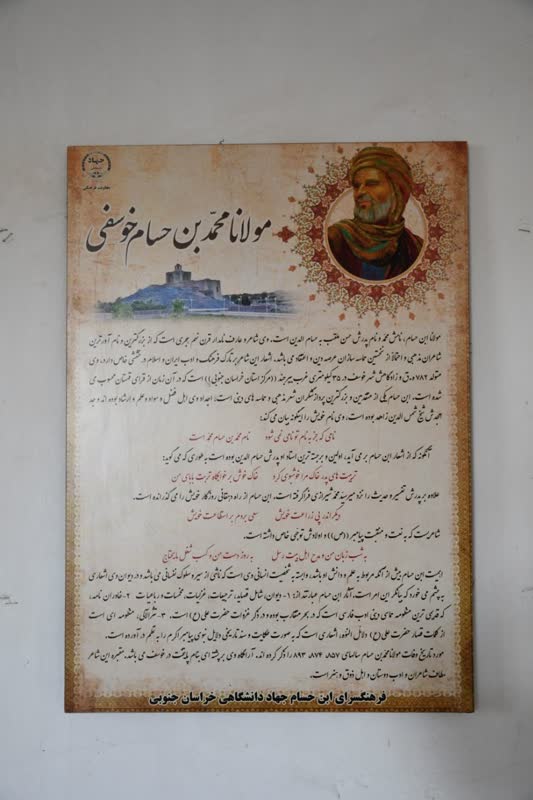 جهاد
معاونت فرهنگی
مولانا محمد بن حسام خوسفی
مولانا ابن حسام، نامش محمد و نام پدرش حسن ملقب به حسام الدین است. وی شاعر و عارف نامدار قرن نهم هجری است که از بزرگترین و نام آورترین
شاعران مذهبی و از نخستین حماسه سازان عرصه دین و اعتقاد می باشد. اشعار این شاعر بر تارک فرهنگ و ادب ایران و اسلام درخششی خاص دارد. وی
متولد ۷۸۲ ه.ق و زادگاهش شهر خوسف در ۳۵ کیلومتری غرب بیرجند ((مرکز استان خراسان جنوبی)) است که در آن زمان از قرای قهستان محسوب می
شده است. ابن حسام یکی از متقدمین و بزرگترین پردازشگران شعر مذهبی و حماسه های دینی است؛ اجداد وی اهل فضل و سواد و علم و ارشاد بوده اند و جد
امجدش شیخ شمس الدین زاهد بوده است، وی نام خویش را اینگونه بیان می کند:
نامی که جز به نام تو نامی نمی شود نام محمد بن حسام محمد است
آنگونه که از اشعار ابن حسام بر می آید، اولین و برجسته ترین استاد او پدرش حسام الدین بوده است به طوری که می گوید:
تربیت های پدر خاک مرا خوشبوی کرد خاک خوش بر خوابگاه تربت بابای من
علاوه بر پدرش تفسیر و حدیث را نزد میر سید محمد شیرازی فرا گرفته است. ابن حسام از راه دهقانی روزگار خویش را می گذرانده است.
دیگر اندر پی زراعت خویش سعی بردم بر استطاعت خویش
شاعر است که به نعت و منقبت پیامبر (ص) و اولادش توجهی خاص داشته است.
به شب زبان من و مدح اهل بیت رسل به روز دست من و کسب شغل مایحتاج
اهمیت ابن حسام بیش از آنکه مربوط به علم و دانش او باشد، وابسته به شخصیت انسانی وی است که ناشی از سیر و سلوک نفسانی می باشد و در دیوان وی اشعاری
به چشم می خورد که بیانگر این امر است. آثار ابن حسام عبارتند از: ۱- دیوان، شامل قصاید، ترجیعات، غزلیات، مخمسات و رباعیات ۲- خاوران نامه،
که قدیمی ترین منظومه حماسی دینی ادب فارسی است که در بحر متقارب بوده و در ذکر غزوات حضرت علی (ع) است. ۳- نثر اللآلی، منظومه ای است
از کلمات قصار حضرت علی (ع) دلایل النبوه، اشعاری است که به صورت حکایت و سند تاریخی دلایل نبوی پیامبر اکرم را به نظم در آورده است.
مورد تاریخ وفات مولانا محمد بن حسام سالهای ۸۵۷، ۸۷۴، ۸۹۳ را ذکر کرده اند. آرامگاه وی بر پشته ای بنام پایتخت در خوسف می باشد. مقبره این شاعر
مطاف شاعران و ادب دوستان و اهل ذوق و هنر است.
فرهنگسرای ابن حسام جهاد دانشگاهی خراسان جنوبی